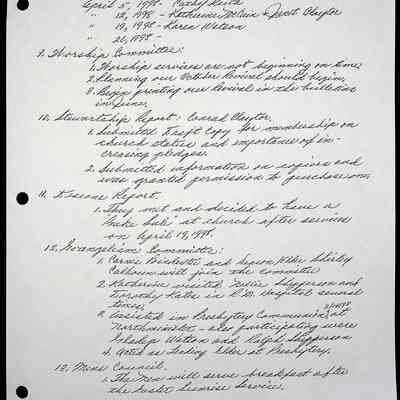 April 5, 1998 - Cathy
" 12, 1998 - Katherine McCain & Janet Claytor
" 19, 1998 - Karen Watson
" 26, 1998 -
9. Worship Committee:
1. Worship services are not beginning on time;
2. Planning our October Revival should begin;
3. Begin printing our Revival in the bulletins
in June.
10. Stewartship Report: Conrad Claytor.
1. Submitted Draft Copy for membership on
church statics and importance of in-
creasing pledges.
2. Submitted information on copiers and
was granted permission to purchase one.
11. Deacons Report.
1. They met and decided to have a
"Bake Sale" at church after services
on April 19, 1998.
12. Evangelism Committee:
1. Carrie Poindexter and Elder Shirley
Calhoun will join the committee
2. Katherine visited Nellie Shepperson and
Dorothy in Hospital several
times;
3. Assisted in Presbytery Communion at
Northminster - also participating were
Watson and Ralph Shepperson
4. Acted as Leading Elder at Presbytery.
13. Mens Council.
1. The Men will serve breakfast after
the Easter Sunrise Service.